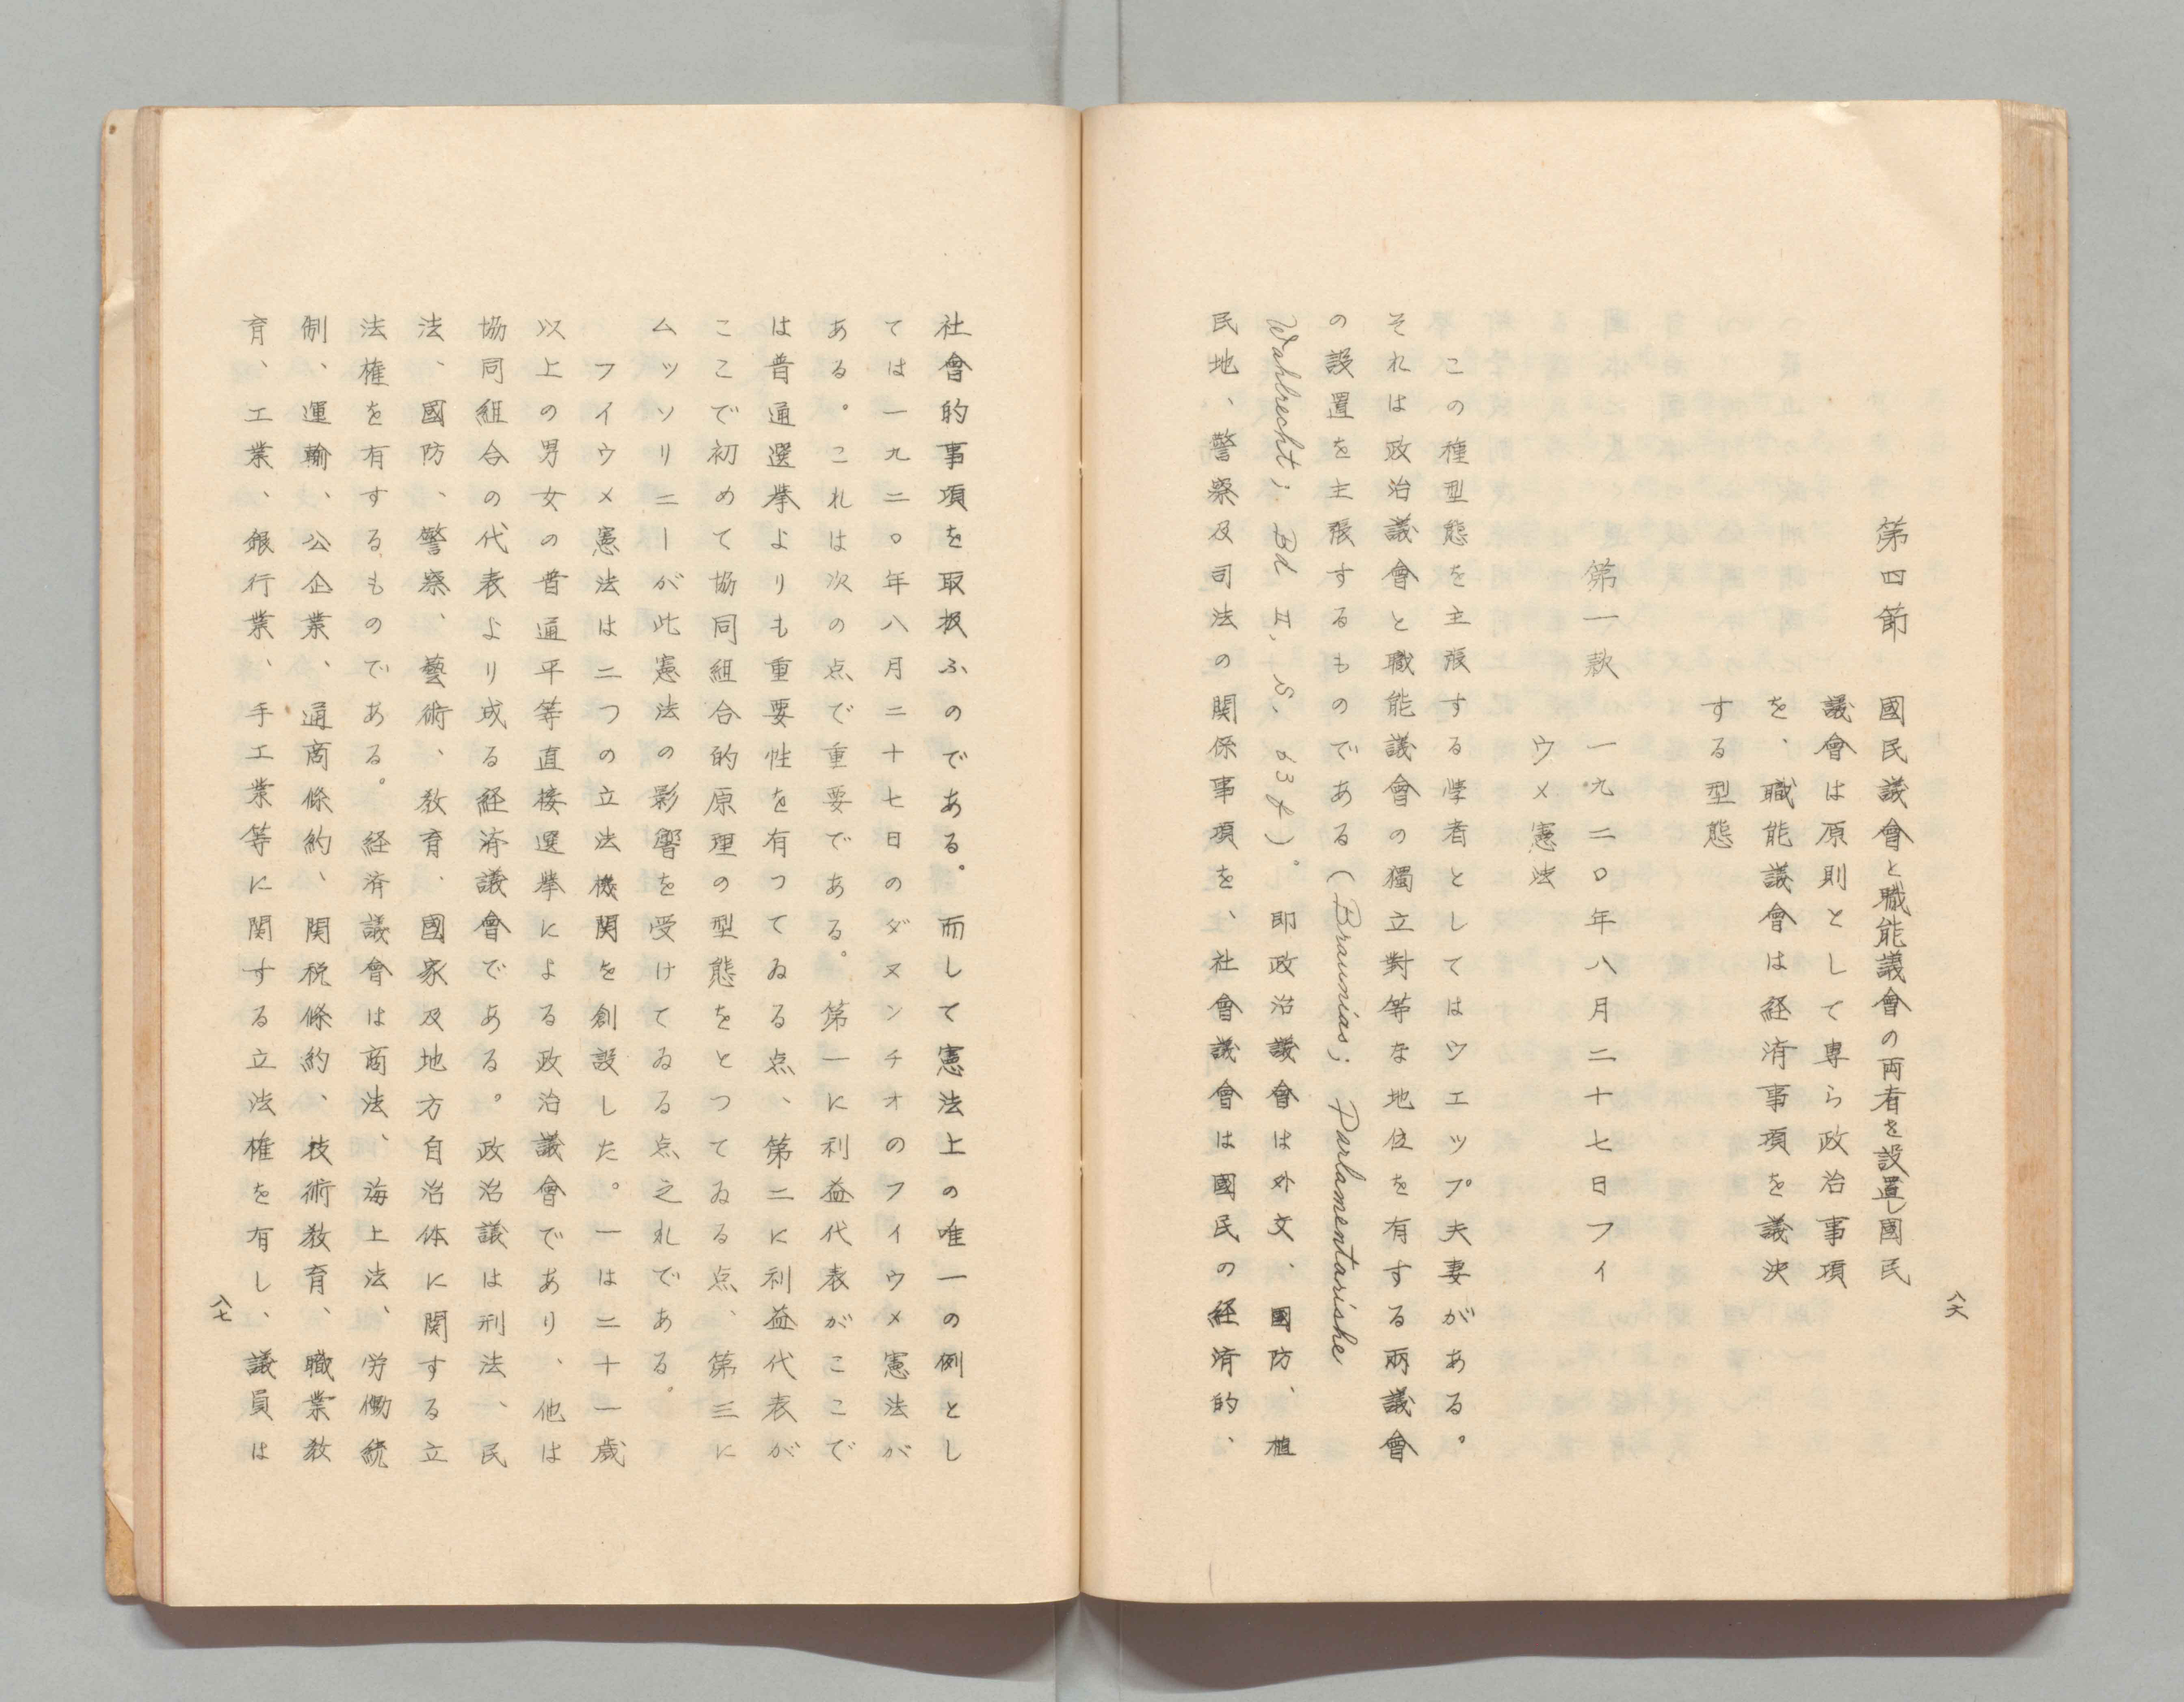 第四節　國民議會と職能議會の両者を設置し國民
議會は原則として専ら政治事項
を、職能議會は経済事項を議決
する型態
第一款　一九二〇年八月二十七日フイ
ウメ憲法
この種型態を主張する学者としてはウエッブ夫妻がある。
それは政治議會と職能議會の獨立對等な地位を有する兩議會
の設置を主張するものである（Braunias; Parlamentarishe
Wahlrecht; Bd II, S. 63f）。即政治議會は外交、國防、植
民地、警察及司法の関係事項を、社會議會は國民の経済的、
八六
社會的事項を取扱ふのである。而して憲法上の唯一の例とし
ては一九二〇年八月二十七日のダヌンチオのフイウメ憲法が
ある。これは次の点で重要である。第一に利益代表がここで
は普通選挙よりも重要性を有つてゐる点、第二に利益代表が
ここで初めて協同組合的原理の型態をとつてゐる点、第三に
ムッソリニーが此憲法の影響を受けてゐる点之れである。
フイウメ憲法は二つの立法機関を創設した。一は二十一歳
以上の男女の普通平等直接選挙による政治議會であり、他は
協同組合の代表より成る経済議會である。政治議は刑法、民
法、國防、警察、藝術、教育、國家及地方自治体に関する立
法権を有するものである。経済議會は商法、海上法、労働統
制、運輸、公企業、通商條約、関税條約、技術教育、職業教
育、工業、銀行業、手工業等に関する立法権を有し、議員は
八七